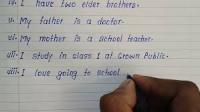 iv. I have two elder brothers.
v. My father is a doctor.
vi. My mother is a school teacher.
vii. I study in class 1 at Crown Public.
viii. I love going to school